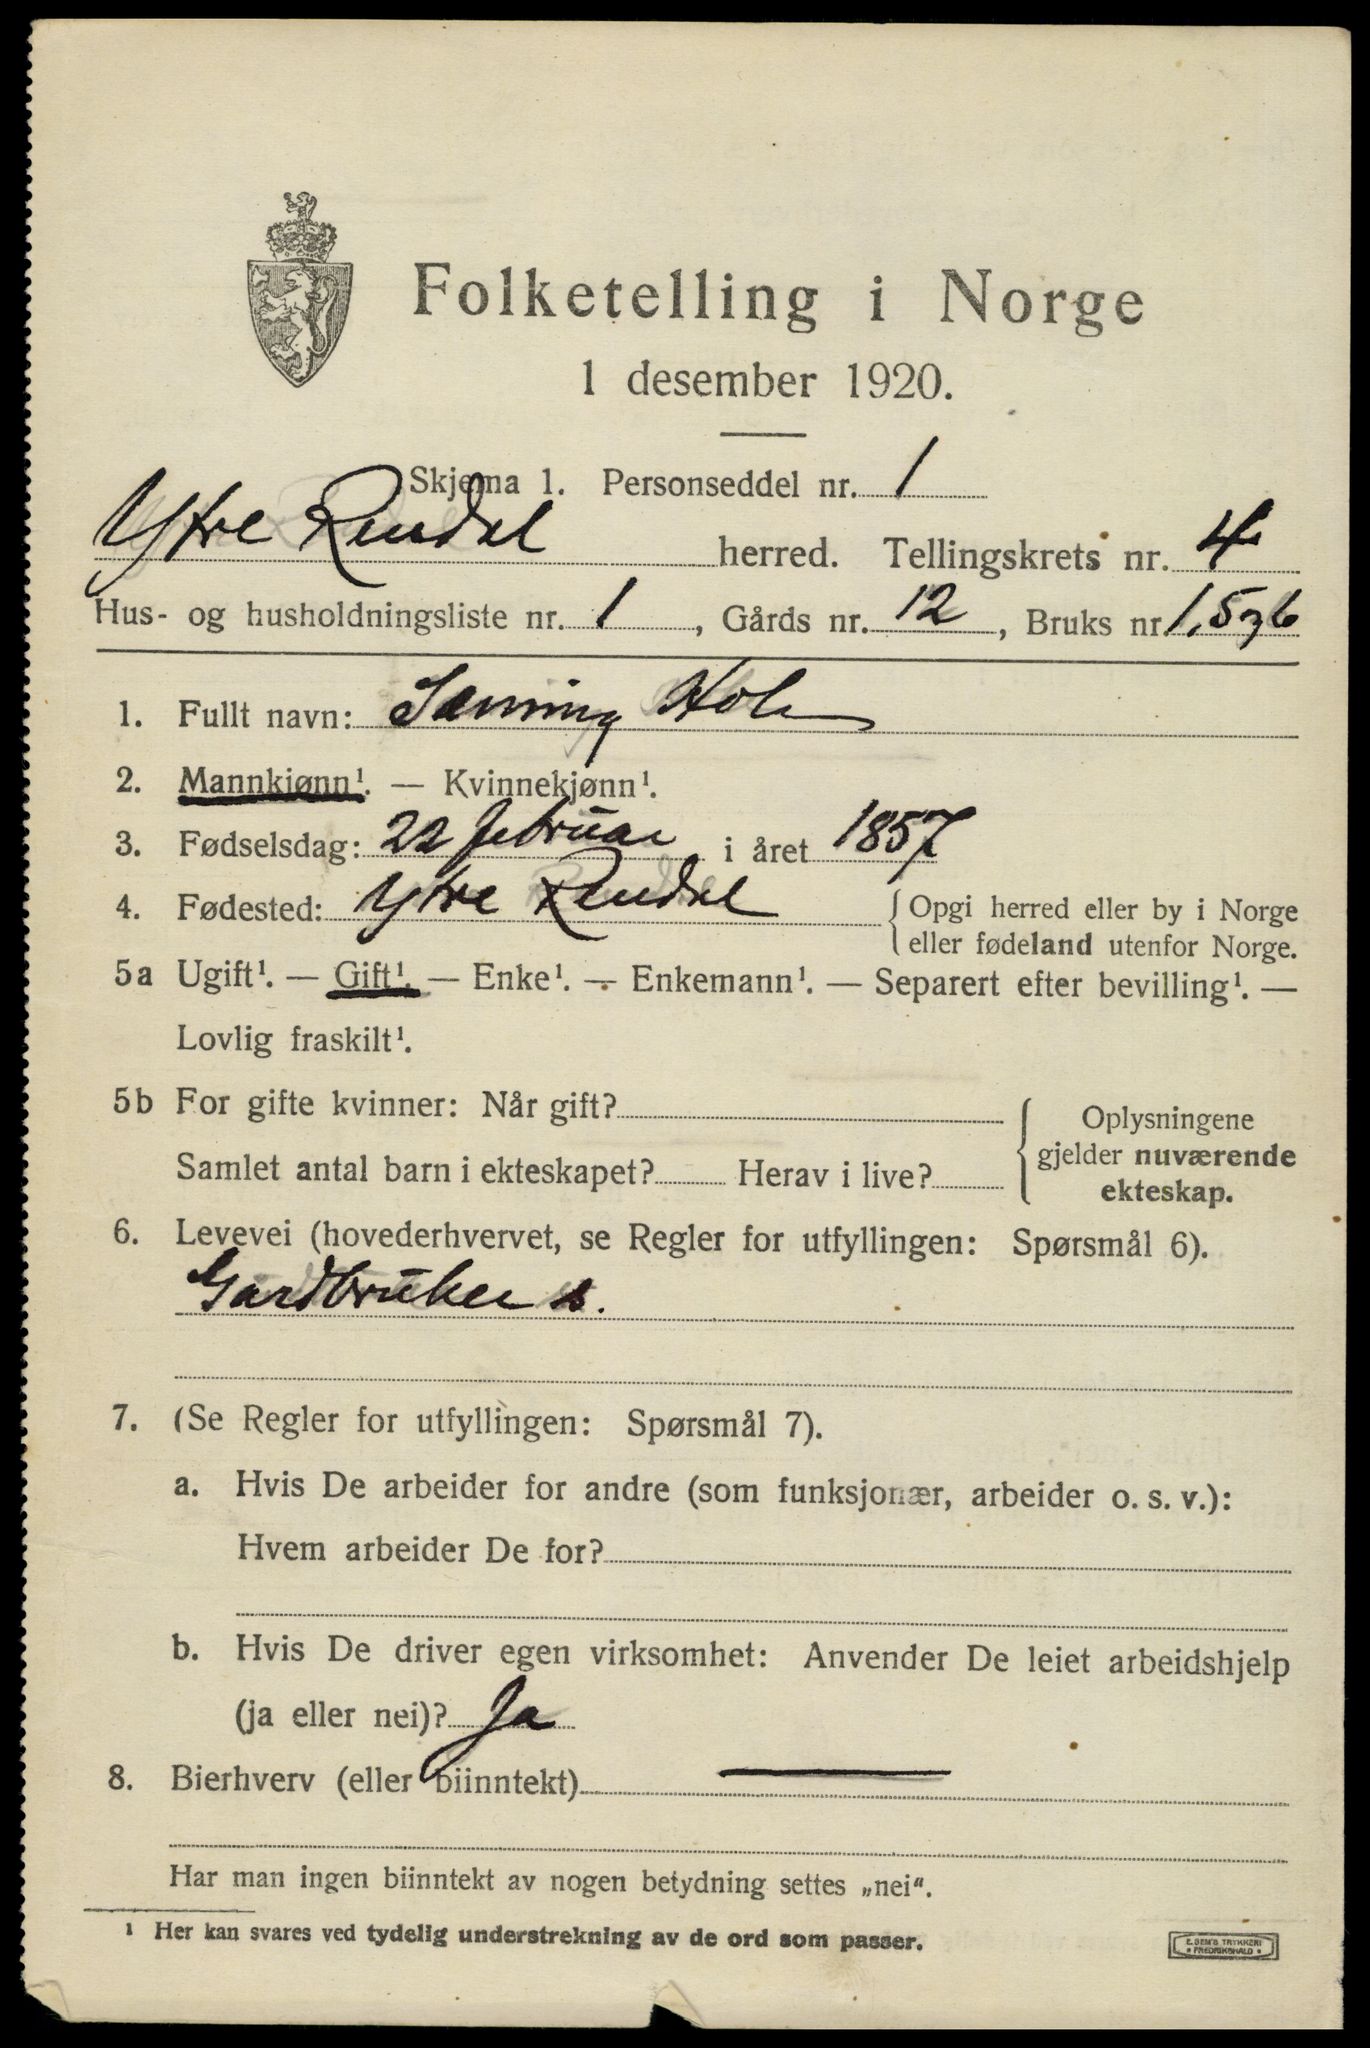 Folketelling i Norge
1 desember 1920.
Skjema 1. Personseddel nr. 1
Ytre Rendal herred. Tellingskrets nr. 4
Hus- og husholdningsliste nr. 1, Gårds nr. 12, Bruks nr. 1, 5 og 6
1. Fullt navn: Sæming Hole
2. Mannkjønn¹. — Kvinnekjønn¹.
3. Fødselsdag: 22 februar i året 1857
4. Fødested: Ytre Rendal { Opgi herred eller by i Norge
eller fødeland utenfor Norge.
5a Ugift¹. — Gift¹. — Enke¹. — Enkemann¹. — Separert efter bevilling¹. —
Lovlig fraskilt¹.
5b For gifte kvinner: Når gift?
Samlet antal barn i ekteskapet? Herav i live?
{ Oplysningene
gjelder nuværende
ekteskap.
6. Levevei (hovederhvervet, se Regler for utfyllingen: Spørsmål 6).
Gardbruker s.
7. (Se Regler for utfyllingen: Spørsmål 7).
a. Hvis De arbeider for andre (som funksjonær, arbeider o. s. v.):
Hvem arbeider De for?
b. Hvis De driver egen virksomhet: Anvender De leiet arbeidshjelp
(ja eller nei)? Ja
8. Bierhverv (eller biinntekt) —
Har man ingen biinntekt av nogen betydning settes „nei“.
¹ Her kan svares ved tydelig understrekning av de ord som passer.
E. SEM'S TRYKKERI
* FREDRIKSHALD *